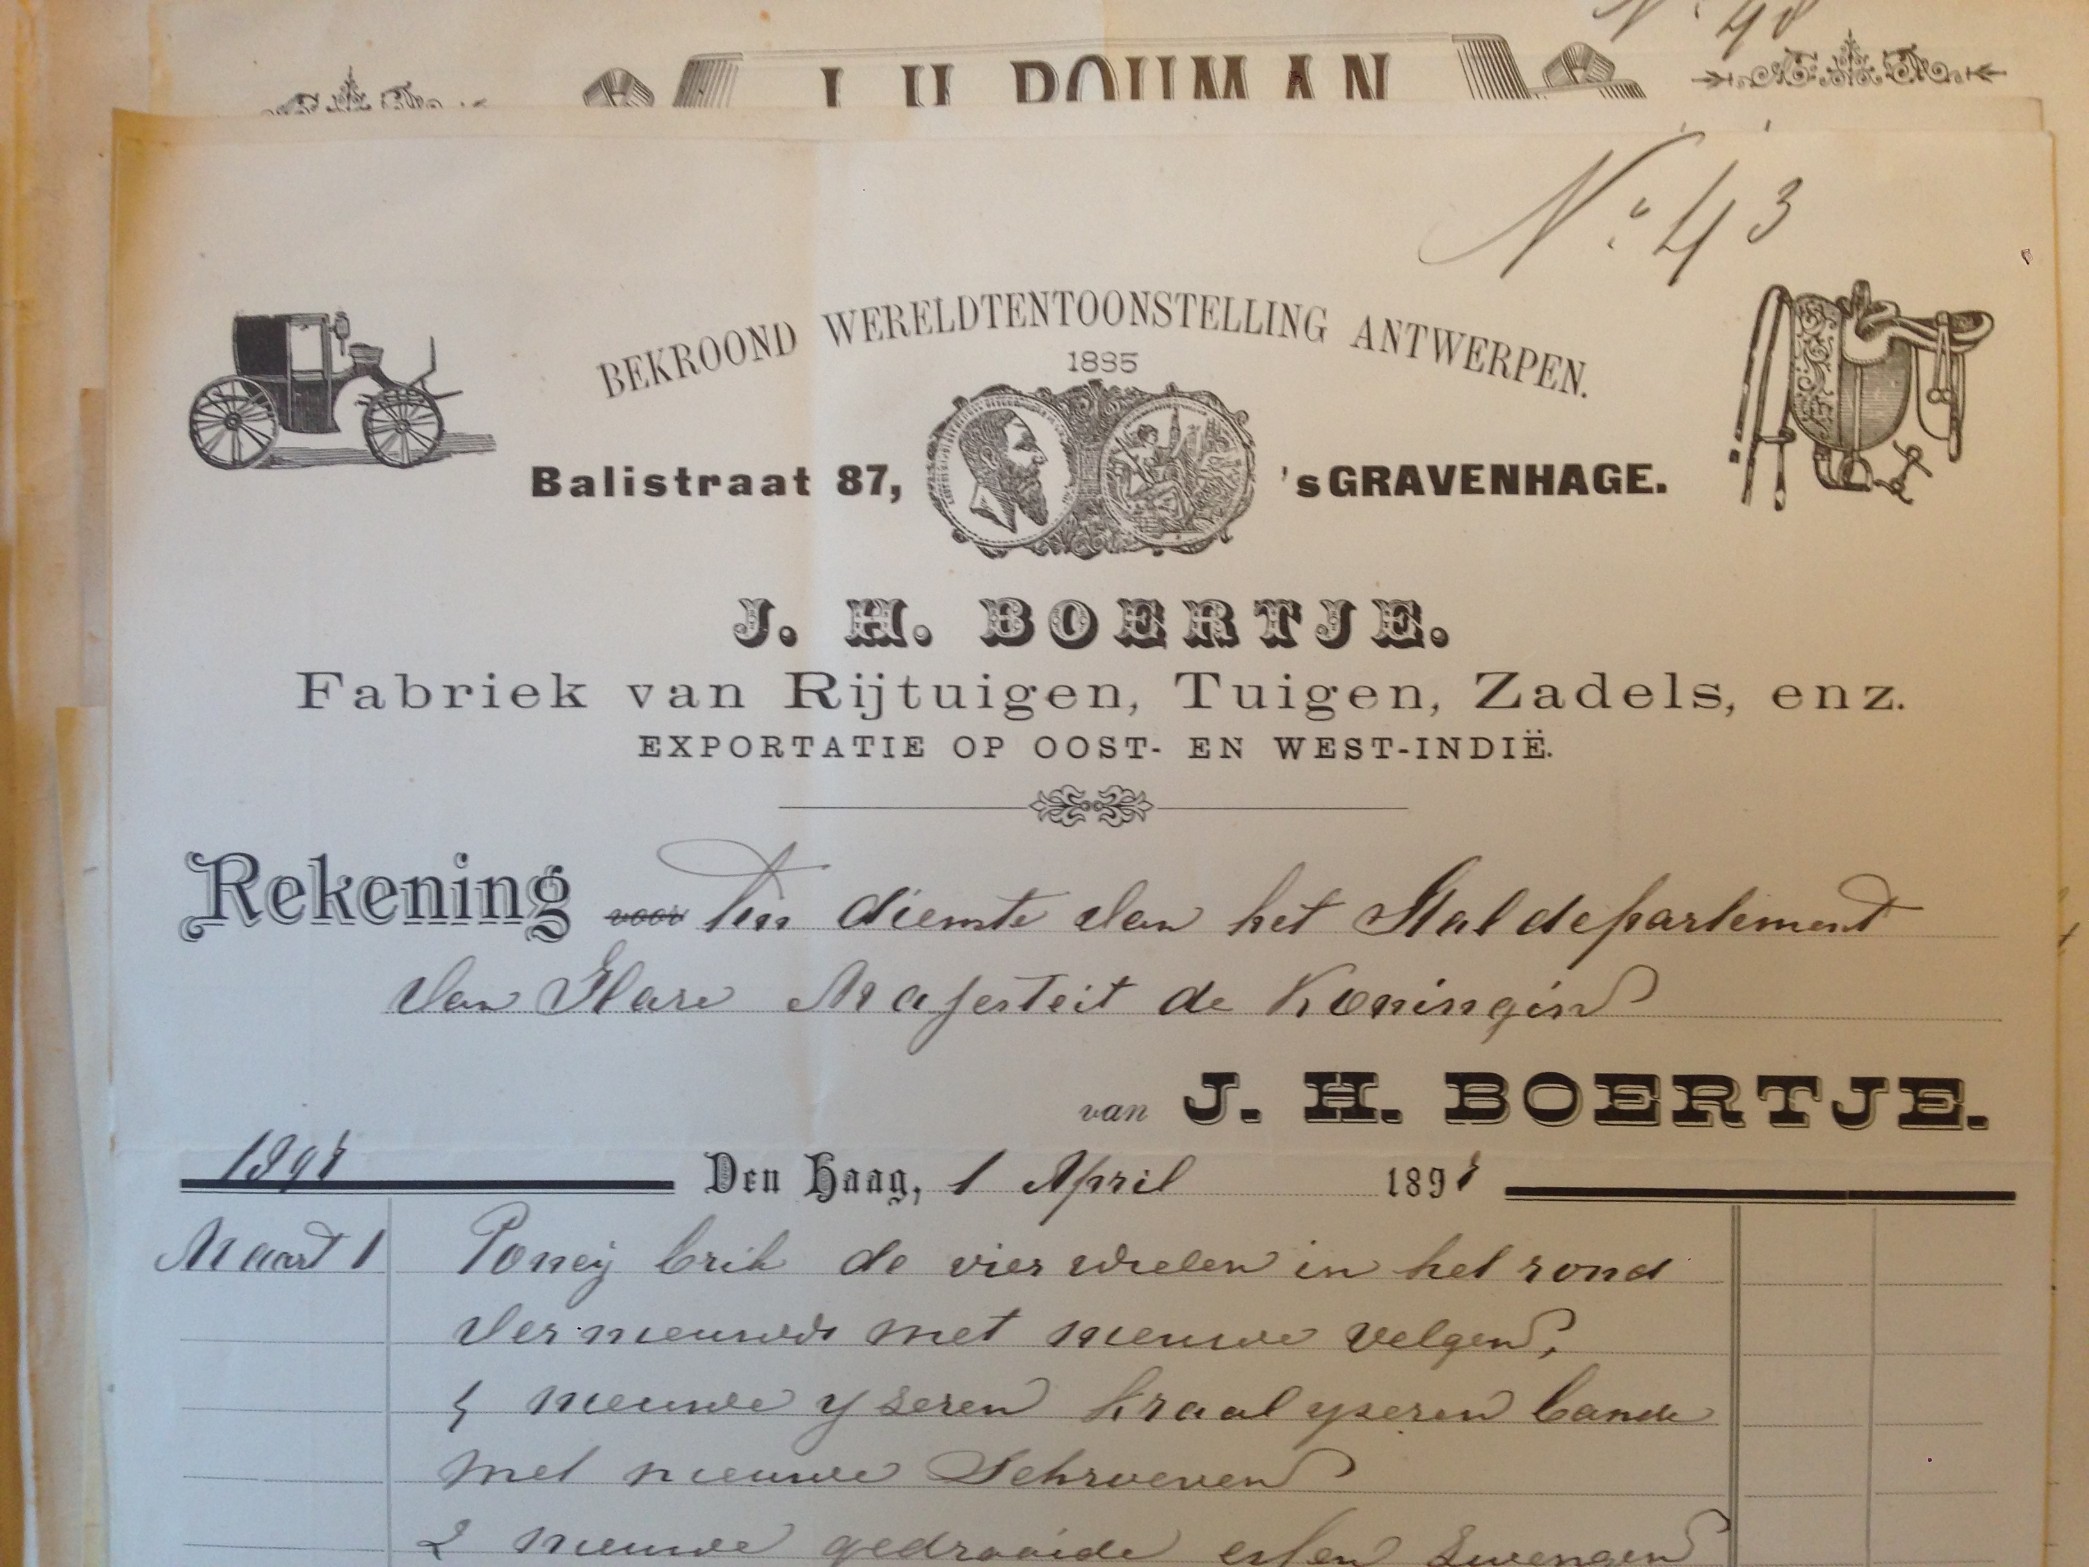 No. 48
J. H. BOUMAN
No. 43
BEKROOND WERELDTENTOONSTELLING ANTWERPEN.
1885
Balistraat 87, 'sGRAVENHAGE.
J. H. BOERTJE.
Fabriek van Rijtuigen, Tuigen, Zadels, enz.
EXPORTATIE OP OOST- EN WEST-INDIË.
Rekening voor Ten dienste van het Staldepartement
van Hare Majesteit de Koningin
van J. H. BOERTJE.
1898 Den Haag, 1 April 1898
Maart 1 Poneij brik de vier wielen in het rond
vernieuwd met nieuwe velgen,
4 nieuwe yzeren kraal yzeren bande
met nieuwe Schroeven
2 nieuwe gedraaide essen zwengen